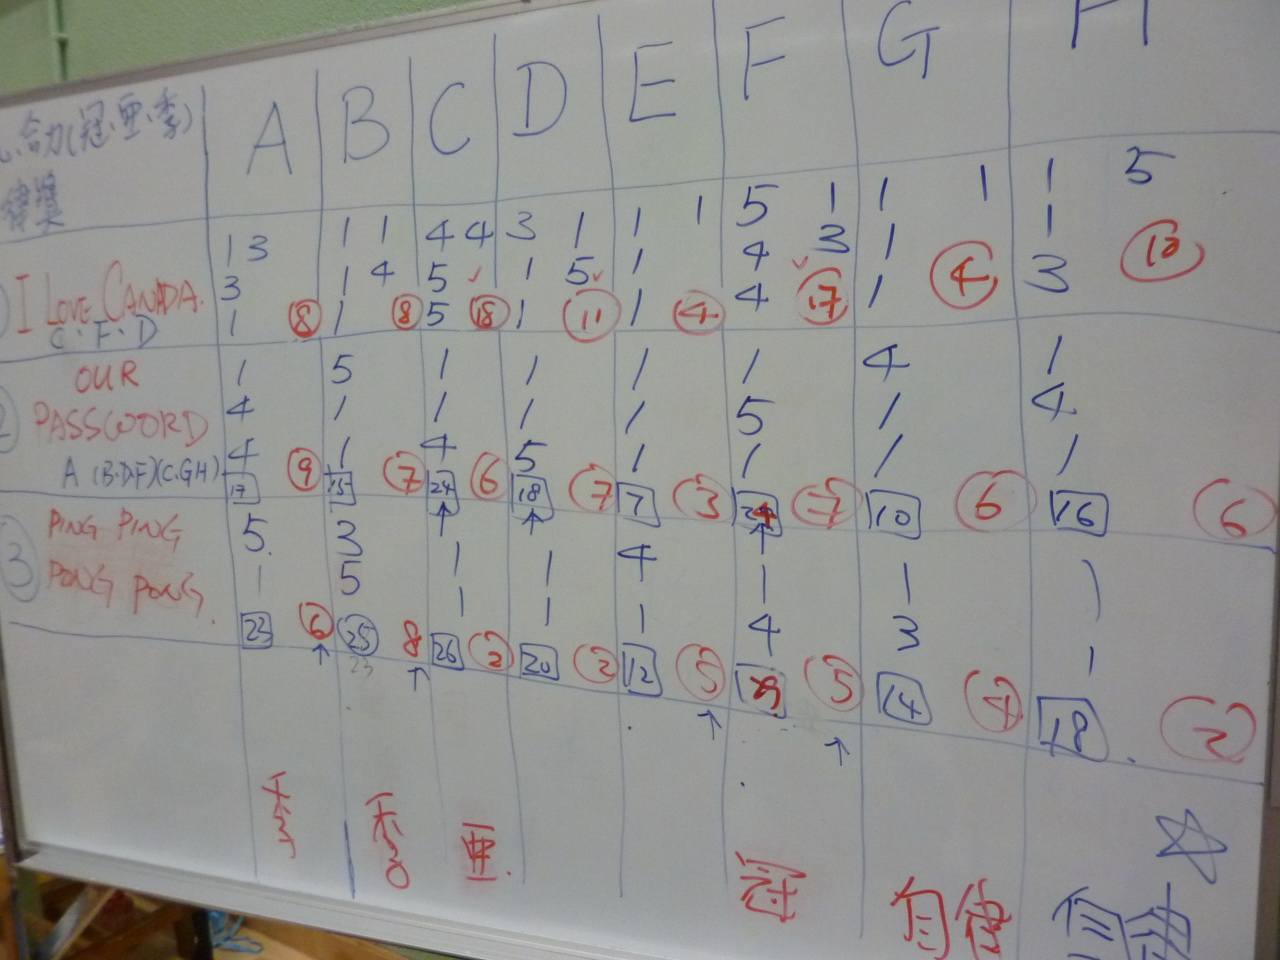 合力(冠.亞.季)
A B C D E F G H
1 3 1 1 4 4 3 1 1 1 5 1 1 1 1 5
3 1 4 5 1 5 1 4 3 1 1
I LOVE CANADA.
1 8 1 8 5 18 1 11 1 4 4 17 1 4 3 10
C.F.D
OUR
1 5 1 1 1 1 4 1
PASSWOORD
4 1 1 1 1 5 1 4
A (B.DF)(C.GH)
4 1 4 5 1 1 1 1
17 9 15 7 24 6 18 7 7 3 24 7 10 6 16 6
3 PING PING
5 3 1 1 4 1 1 1
PONG PONG.
1 5 1 1 1 4 3 1
23 6 25 8 26 2 20 2 12 5 29 5 14 4 18 2
23
季 季 亞. 冠